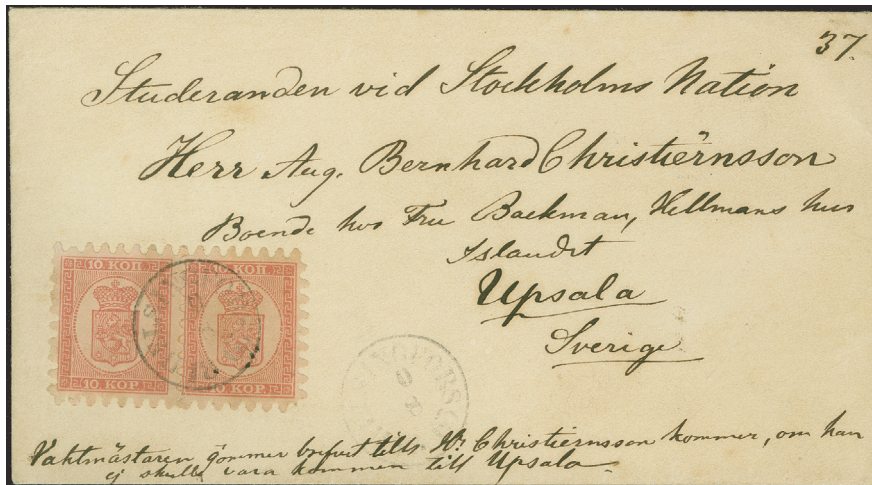 37.
Studeranden vid Stockholms Nation
Herr Aug. Bernhard Christiernsson
Boende hos Fru Baekman, Hellmans hus
Islandet
Upsala
Sverige
10. КОП. 10. КОП.
10 KOP. 10 KOP.
Vaktmästaren gömmer brefvet tills Hr Christiernsson kommer, om han
ej skulle vara kommen till Upsala